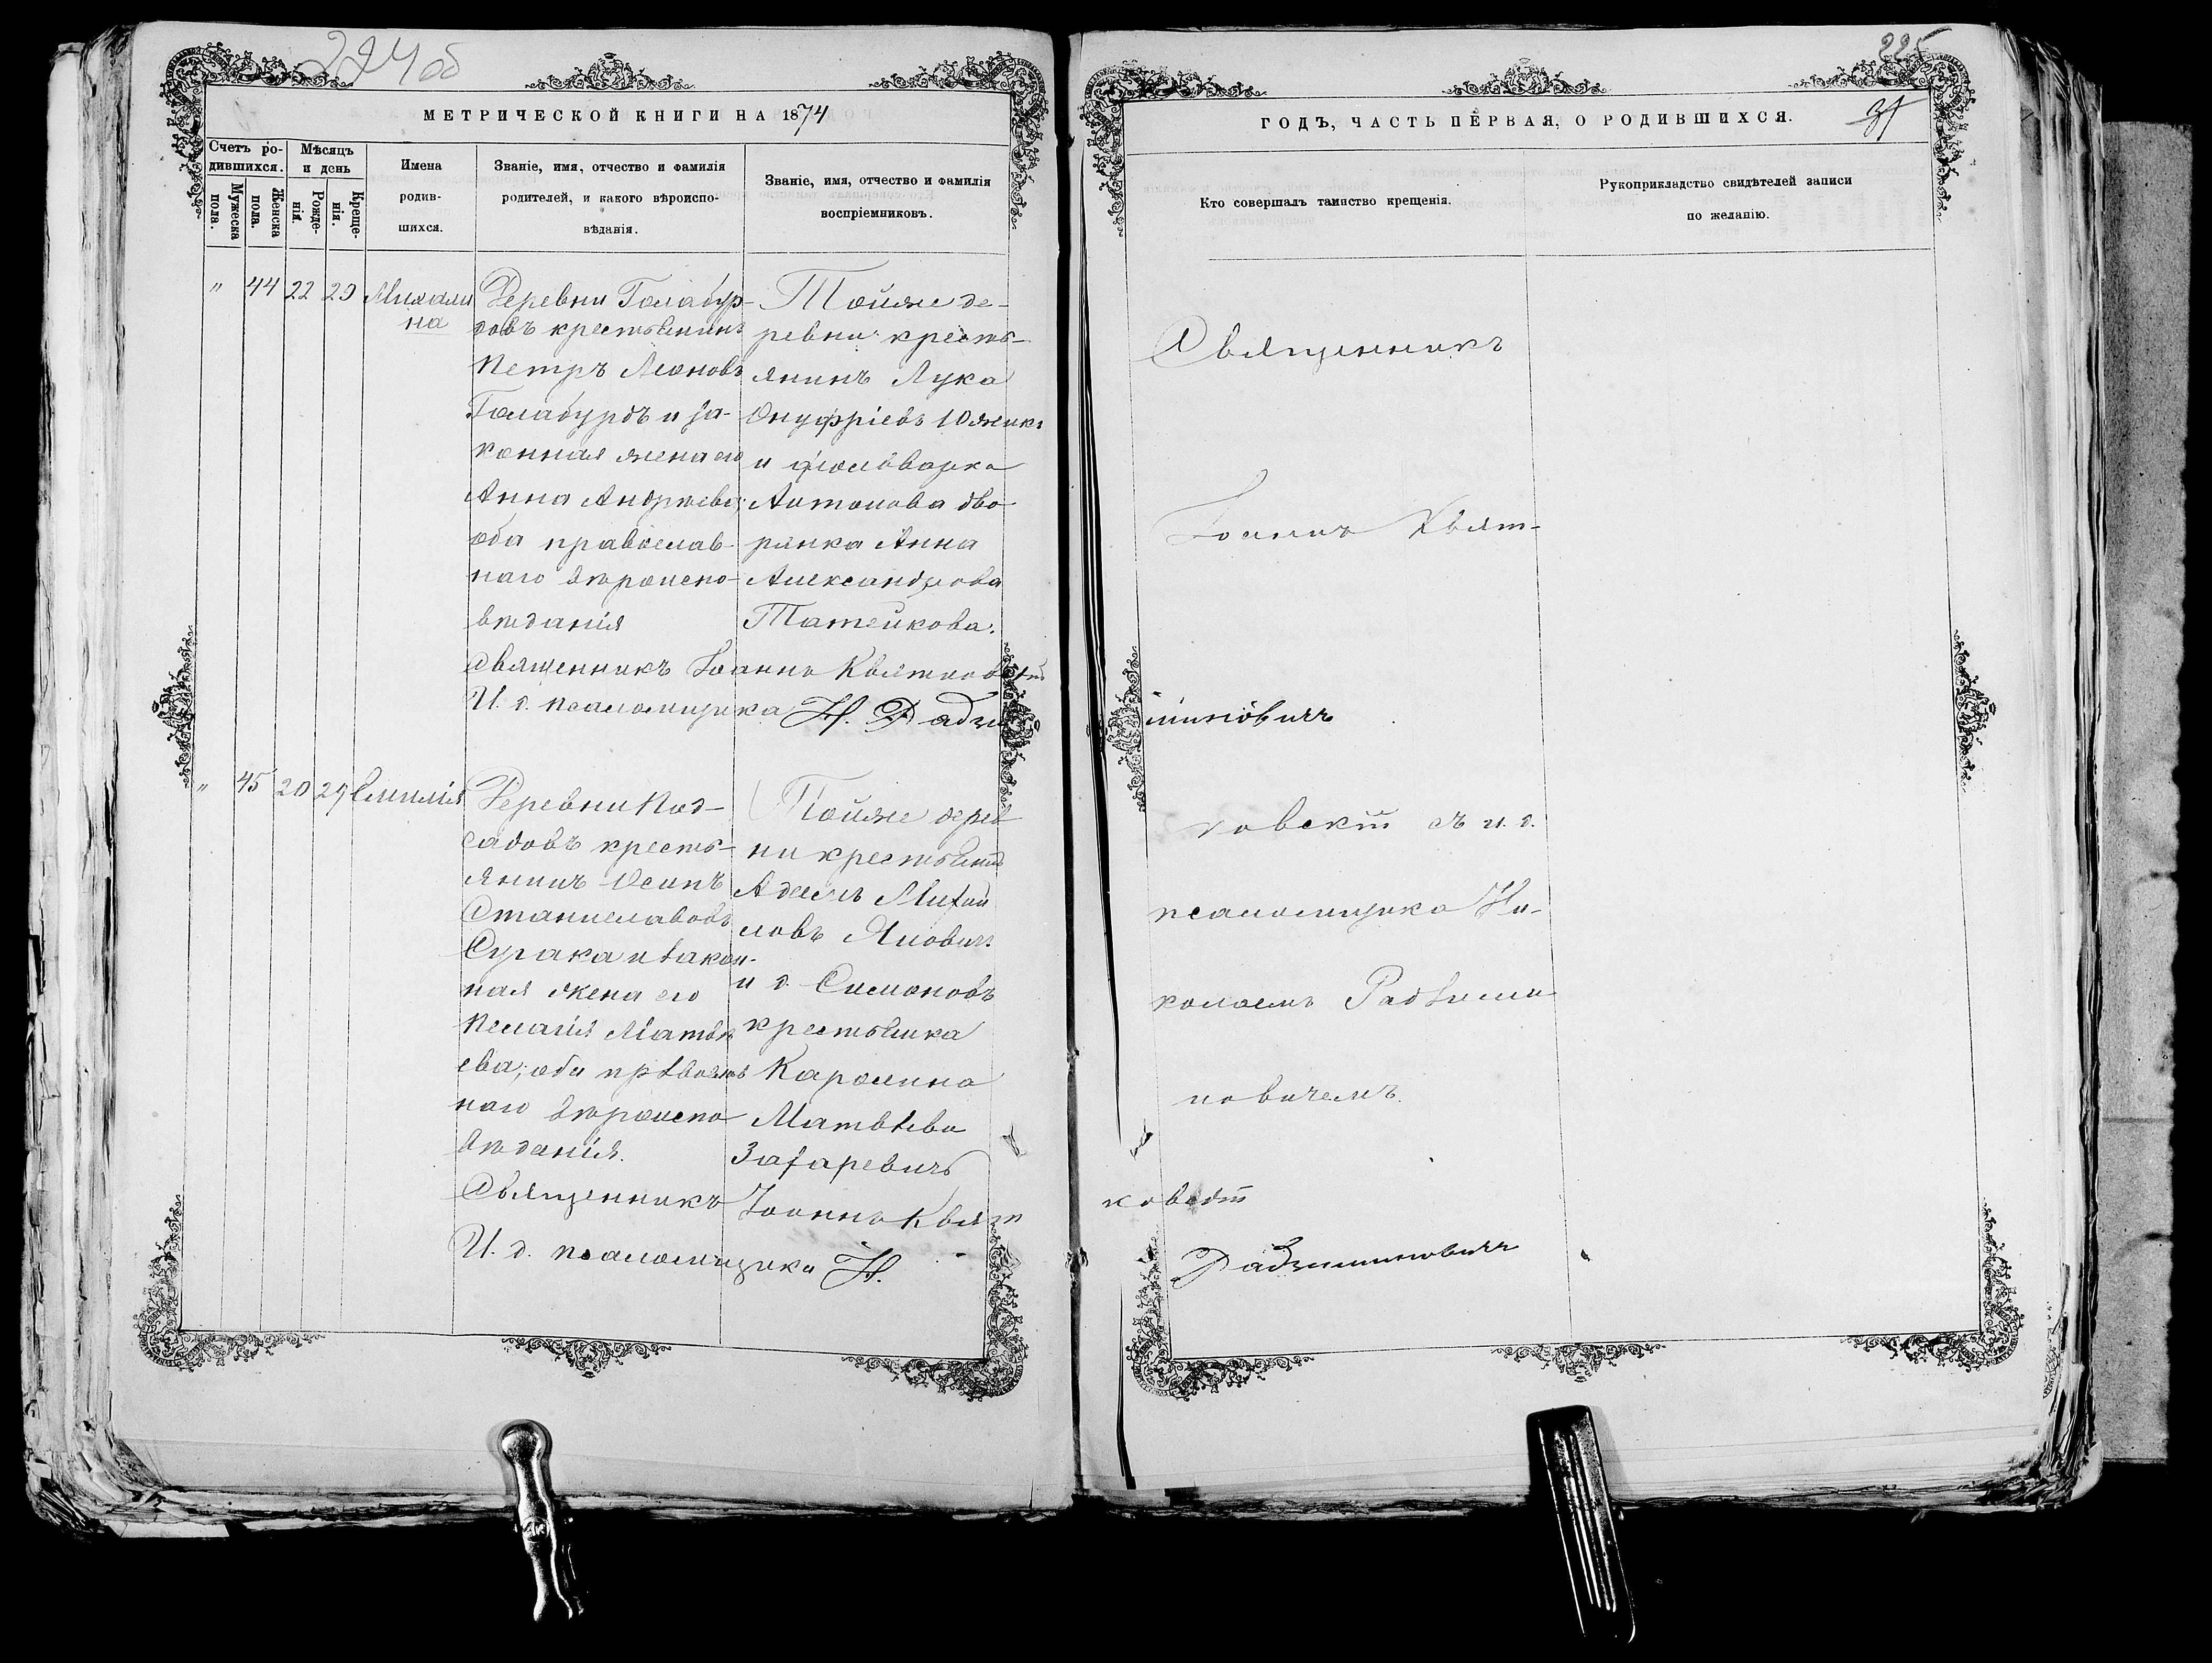 224об
МЕТРИЧЕСКОЙ КНИГИ НА 1874
Счетъ ро-
дившихся.
Мужеска
пола.
Женска
пола.
Мѣсяцъ
и день
Рожде-
нія.
Креще-
нія.
Имена
родив-
шихся.
Званіе, имя, отчество и фамилія
родителей, и какого вѣроиспо-
вѣданія.
Званіе, имя, отчество и фамилія
воспріемниковъ.
" 44 22 29 Михали
на
Деревни Голабур-
довъ крестьянинъ
Петръ Леоновъ
Голабурдъ и за-
конная жена его
Анна Андреева;
оба православ-
наго вѣроиспо-
вѣданія
Тойже де-
ревни кресть-
янинъ Лука
Онуфріевъ
и фольварка
Антонова дво-
рянка Анна
Александрова
Татейкова.
Священникъ Іоаннъ Квятковскій
И. д. псаломщика Н. Радзи
" 45 20 29 Емилія
Деревни Пос-
садовъ кресть-
янинъ Осипъ
Станиславовъ
Сугака и закон-
ная жена его
Пелагія Матвѣ
ева; оба православ
наго вѣроиспо
вѣданія.
Тойже дерев
ни крестьянинъ
Адамъ Михай
ловъ Яновичъ
и д. Симоновъ
крестьянка
Каролина
Матвѣева
Захаревичъ
Священникъ Іоаннъ Квят
И. д. псаломщика Н.
225
ГОДЪ, ЧАСТЬ ПЕРВАЯ, О РОДИВШИХСЯ.
31
Кто совершалъ таинство крещенія.
Рукоприкладство свидѣтелей записи
по желанію.
Священникъ
Іоаннъ Квят-
миновичъ
ковскій съ и. д.
псаломщика Ни-
колаемъ Радзими-
новичемъ.
ковскій
Радзиминовичъ